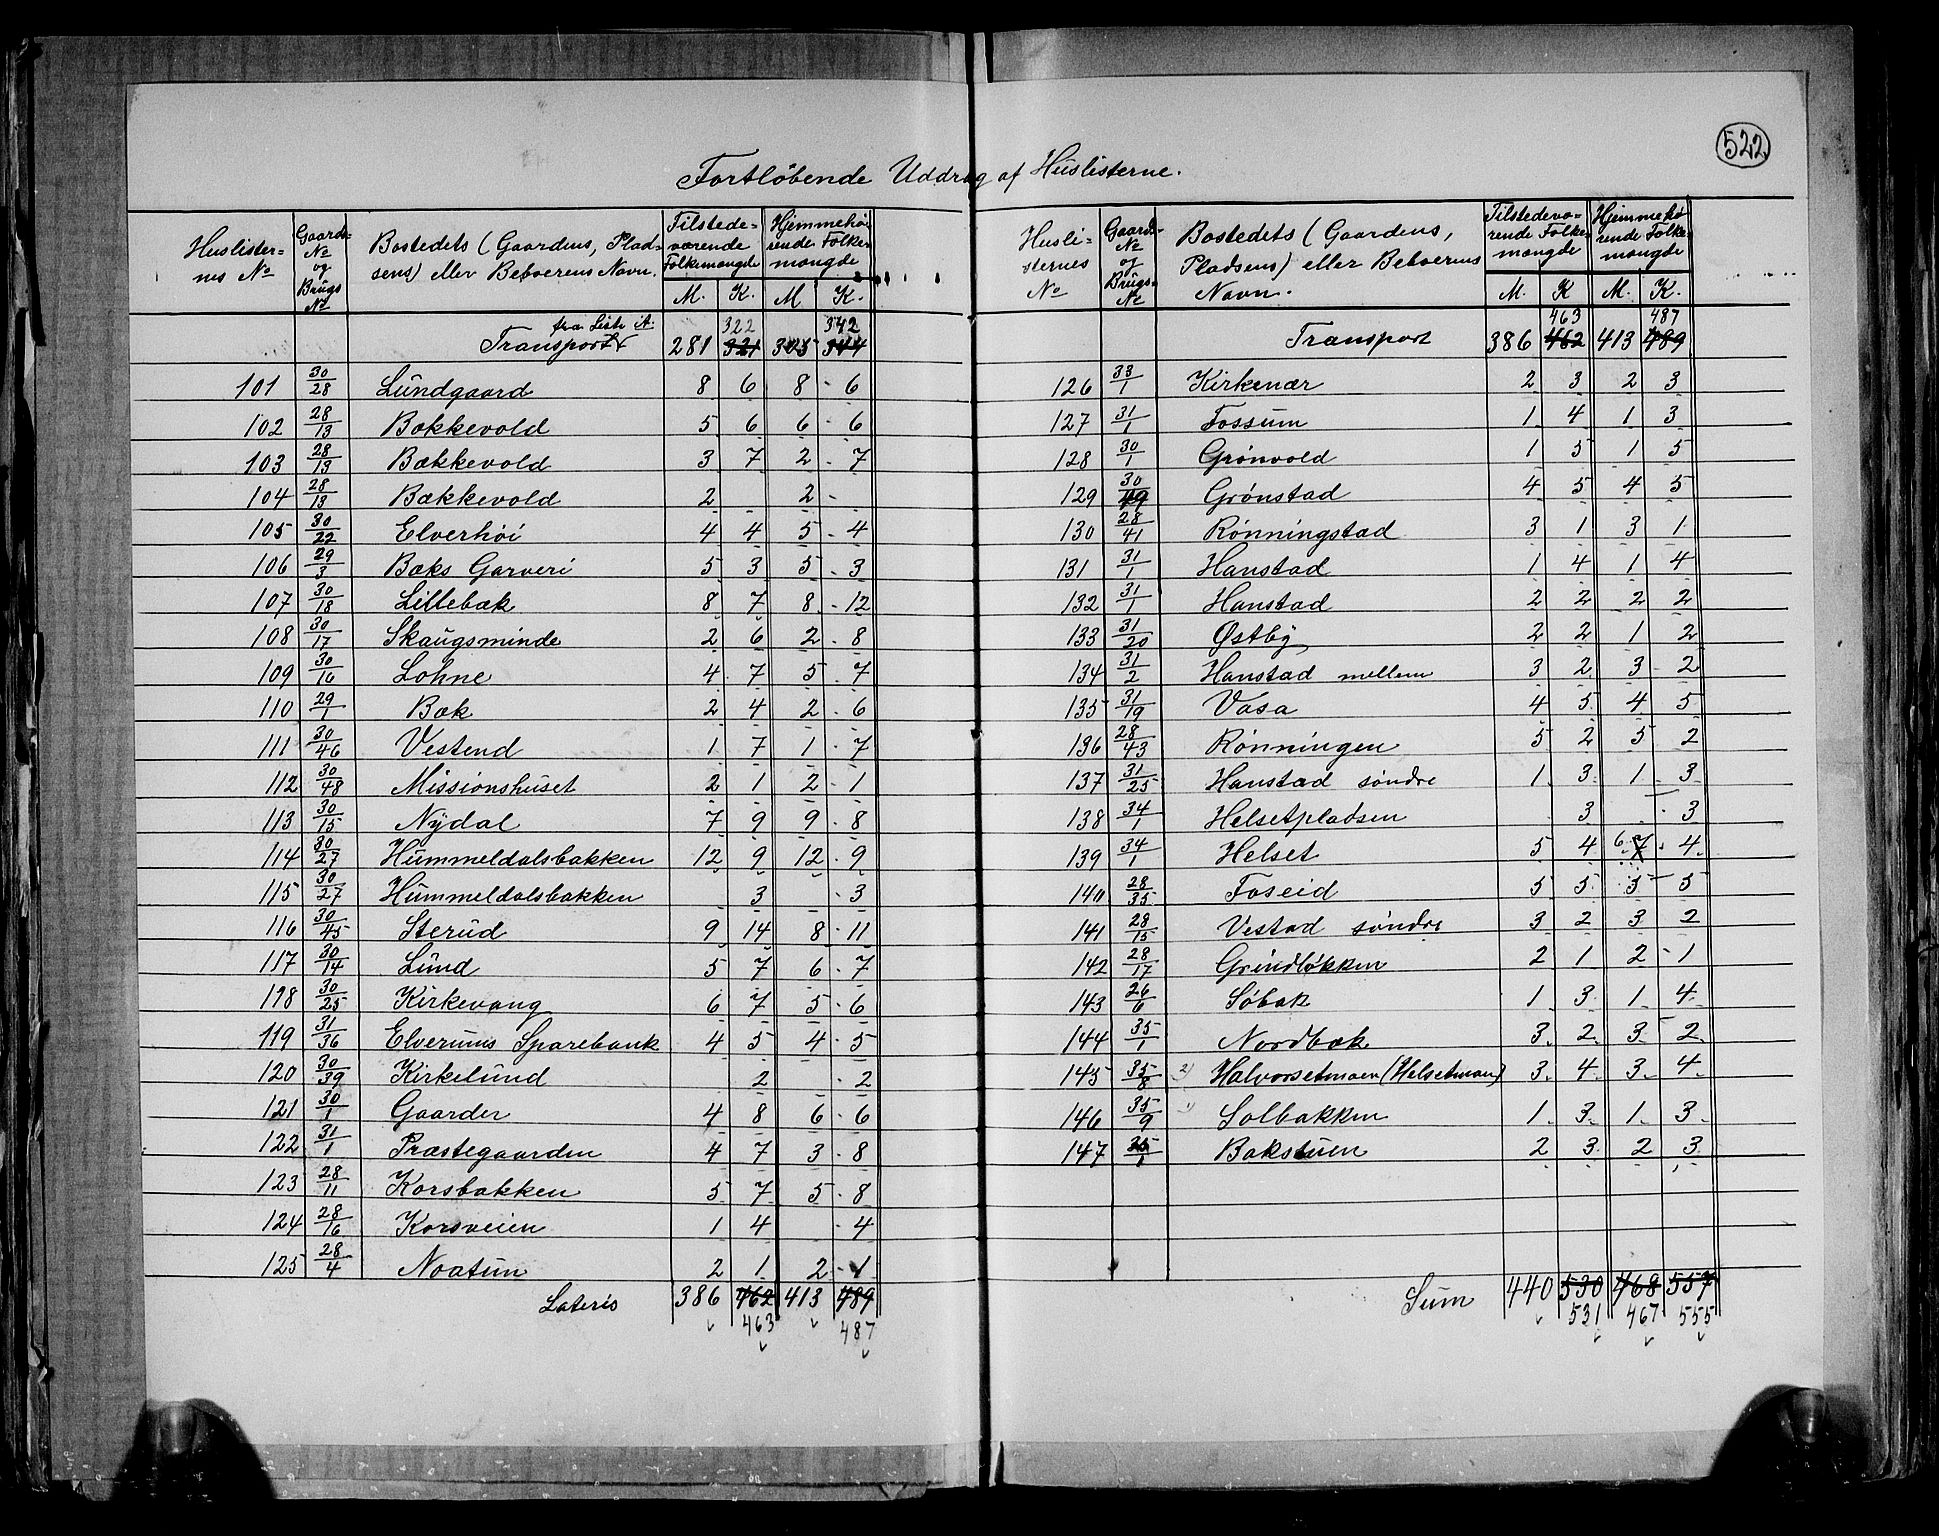 522
Fortløbende Uddrag af Huslisterne.
Huslister-nes No | Gaards-No og Brugs No | Bostedets (Gaardens, Pladsens) eller Beboerens Navn. | Tilstedeværende Folkemængde M. K. | Hjemmehørende Folkemængde M K.
Transport fra Liste A. 281 322 ~~321~~ ~~325~~ 342 ~~344~~
101 30/28 Lundgaard 8 6 8 - 6
102 28/13 Bækkevold 5 6 6 - 6
103 28/13 Bækkevold 3 7 2 - 7
104 28/13 Bækkevold 2 2 -
105 30/22 Elverhöi 4 4 5 - 4
106 29/3 Bæks Garveri 5 3 5 - 3
107 30/18 Lillebæk 8 7 8 - 12
108 30/17 Skaugsminde 2 6 2 - 8
109 30/16 Lohne 4 7 5 - 7
110 29/1 Bæk 2 4 2 - 6
111 30/46 Vestend 1 7 1 - 7
112 30/48 Missionshuset 2 1 2 - 1
113 30/15 Nydal 7 9 9 - 8
114 30/27 Hummeldalsbakken 12 9 12 - 9
115 30/27 Hummeldalsbakken 3 - 3
116 30/45 Sterud 9 14 8 - 11
117 30/14 Lund 5 7 6 - 7
118 30/25 Kirkevang 6 7 5 - 6
119 31/36 Elverums Sparebank 4 5 4 - 5
120 30/39 Kirkelund 2 - 2
121 30/1 Gaarder 4 8 6 - 6
122 31/1 Præstegaarden 4 7 3 - 8
123 28/11 Korsbakken 5 7 5 - 8
124 28/16 Korsveien 1 4 - 4
125 28/4 Noatun 2 1 2 - 1
Lateris 386 ~~462~~ 413 ~~489~~
463 487
Husli-sternes No | Gaards-No og Brugs-No | Bostedets (Gaardens, Pladsens) eller Beboerens Navn. | Tilstedeværende Folkemængde M. K | Hjemmehørende Folkemængde M. K.
Transport 386 463 ~~462~~ 413 487 ~~489~~
126 33/1 Kirkenær 2 3 2 3
127 31/1 Fossum 1 4 1 3
128 30/1 Grønvold 1 5 1 5
129 30/49 Grønstad 4 5 4 5
130 28/41 Rønningstad 3 1 3 1
131 31/1 Hanstad 1 4 1 4
132 31/1 Hanstad 2 2 2 2
133 31/20 Østby 2 2 1 2
134 31/2 Hanstad mellem 3 2 3 2
135 31/19 Vasa 4 5 4 5
136 28/43 Rønningen 5 2 5 2
137 31/25 Hanstad søndre 1 3 1 3
138 34/1 Helsetpladsen 3 3
139 34/1 Helset 5 4 6 ~~7~~ 4
140 28/35 Foseid 5 5 5 5
141 28/15 Vestad søndre 3 2 3 2
142 28/17 Grindløkken 2 1 2 - 1
143 26/6 Søbæk 1 3 1 4
144 35/1 Nordbæk 3 2 3 2
145 35/8 2) Halvorsetmoen (Helsetmoen) 3 4 3 4
146 35/9 1) Solbakken 1 3 1 3
147 35/1 Bakstuen 2 3 2 3
Sum 440 ~~530~~ ~~468~~ ~~557~~
531 467 555